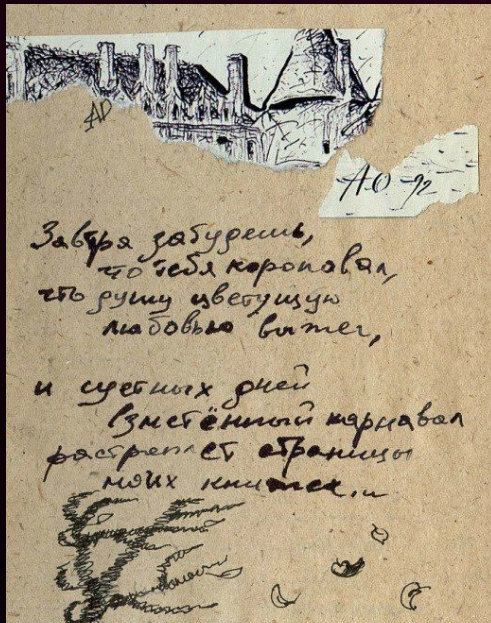 AD
AD-92
Завтра забудешь,
что тебя короновал,
что душу цветущую
любовью выжег,
и суетных дней
взметённый карнавал
растреплет страницы
моих книжек...